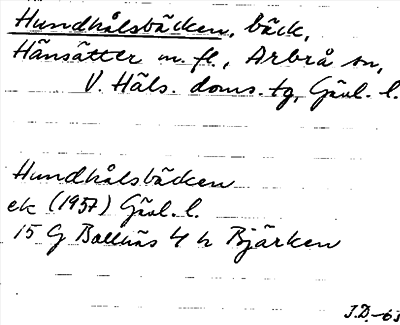 Hundhålsbäcken, bäck,
Hänsätter m. fl., Arbrå sn,
V. Häls. doms. tg, Gävl. l.
Hundhålsbäcken
ek (1957) Gävl. l.
15 G Bollnäs 4 h Bjärken
J.D. -63